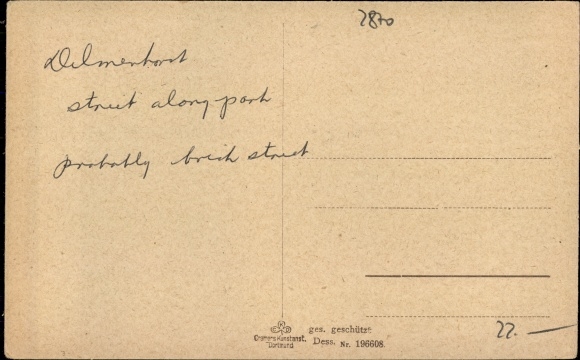 2870
Delmenhorst
street along park
probably brick street
Cramers Kunstanst.
Dortmund
ges. geschützt
Dess. Nr. 196608.
22.—